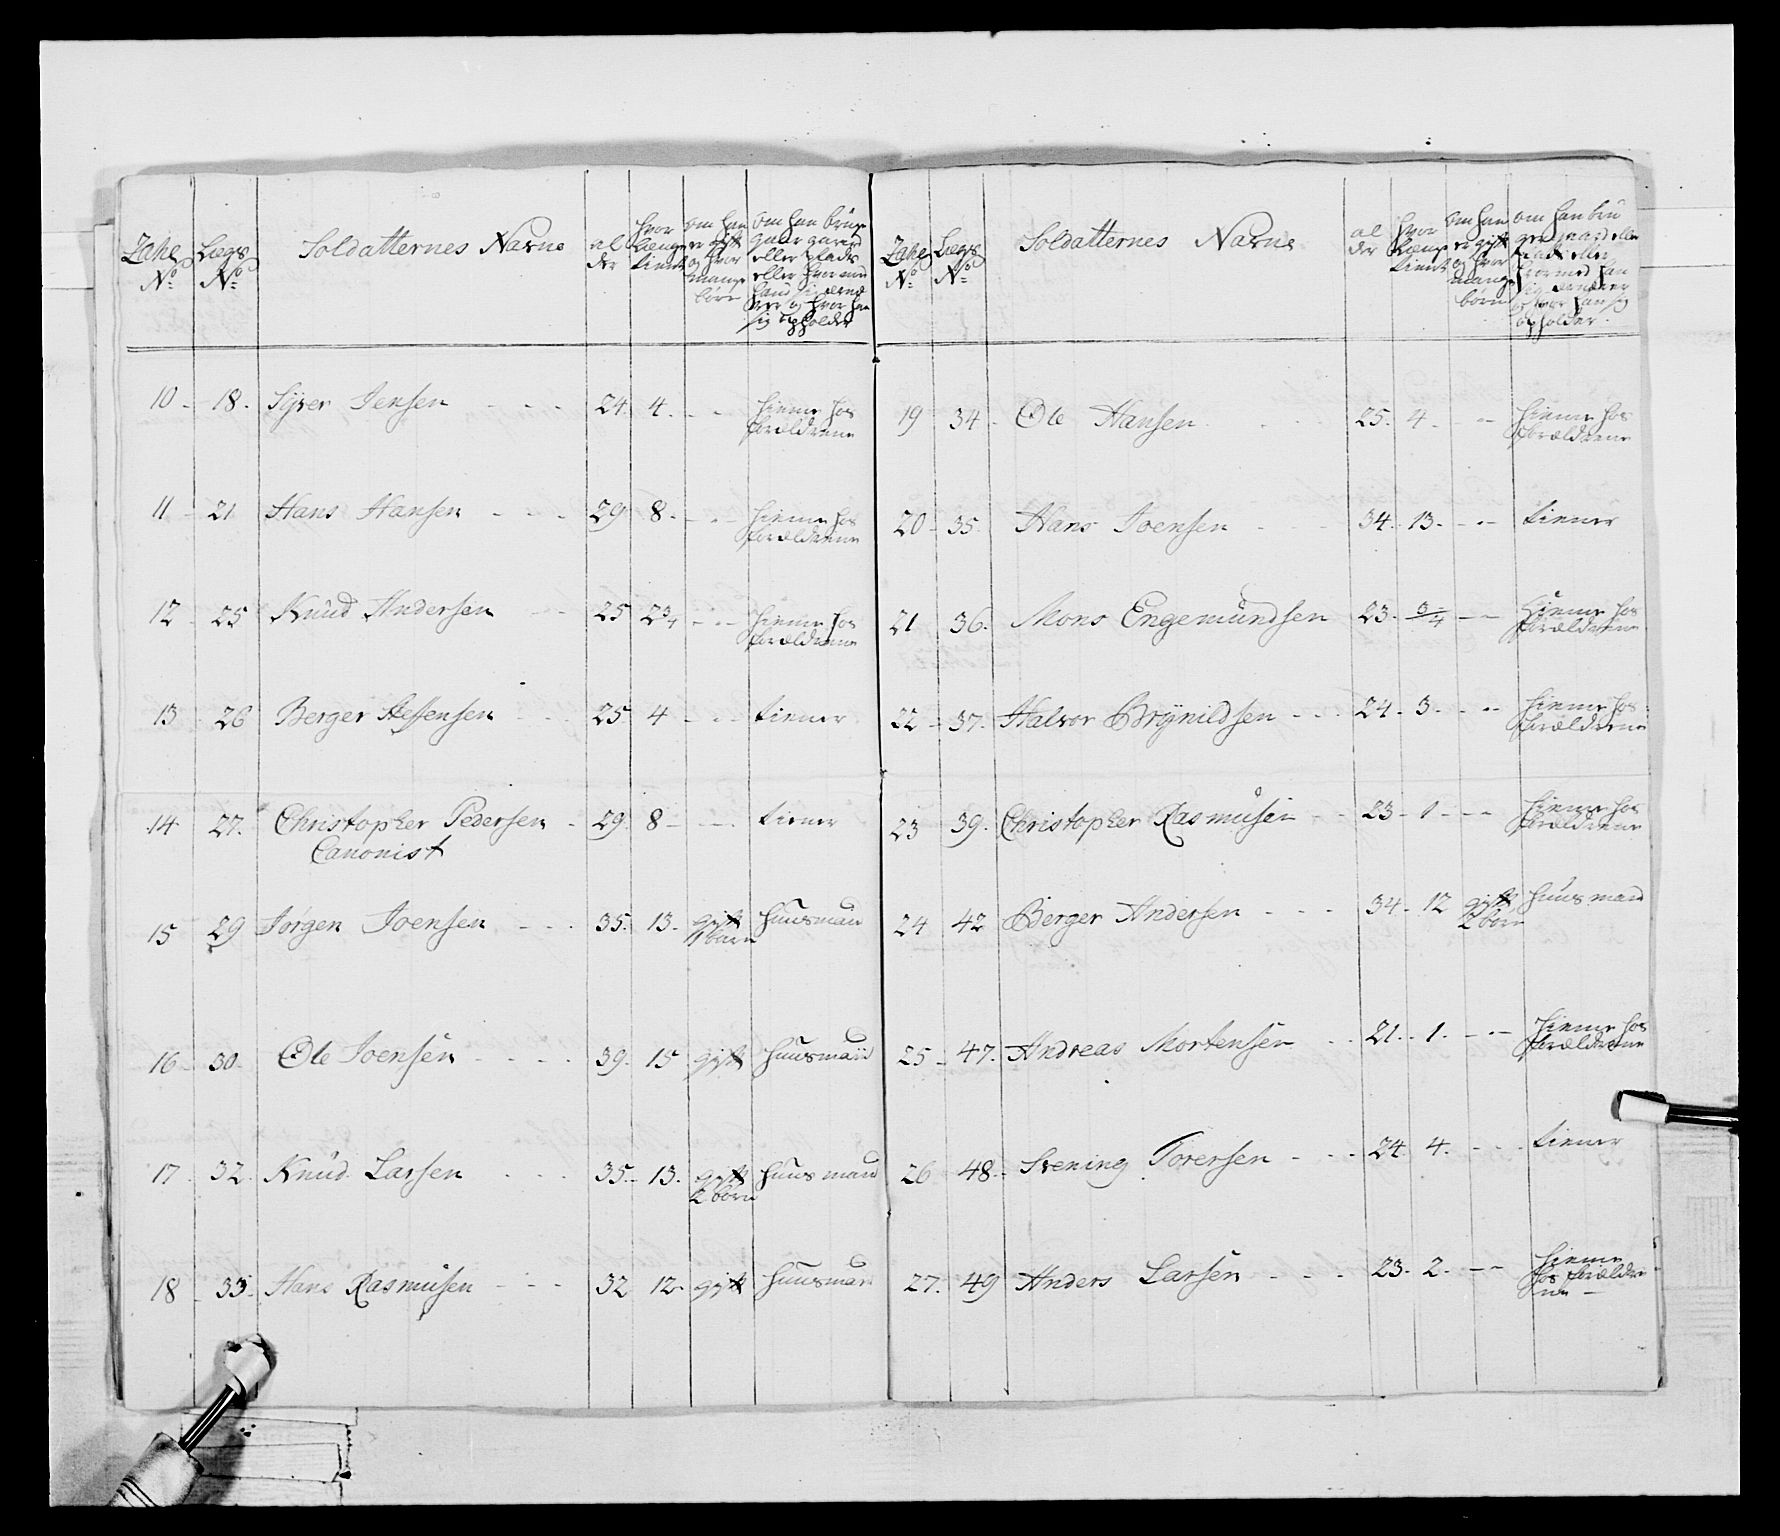 Zahl N:o | Lægs N:o | Soldatternes Navne | al der | hvor længe tient | om han er gift og hvor mange børn | om han bruger gaar gaard eller plads eller hvor med hand sig ernærer og hvor han sig opholder
10 - 18 - Syver Jensen - - - 24. 4. - - hieme hos forældrene
11 - 21 Hans Hansen - - - 29 8. - - - hieme hos forældrene
12 - 25 Knud Andersen - - 25 2 3/4 - - - hieme hos forældrene
13 - 26 Berger - - 25 4 - - - tiener
14 27. Christopher Pedersen - 29. 8 - - - tiener
Canonist
15 29 Jørgen Joensen - - - 35. 13. gift 1 barn huusmand
16 - 30. Ole Joensen - - - 39. 15 gift huusmand
17. 32. Knud Larsen - - - 35. 13. gift 2 børn huusmand
18 - 33. Hans Rasmusen - - - 32 12. gift huusmand
Zahl N:o | Lægs N:o | Soldatternes Navne | al der | hvor længe tient | om han er gift og hvor mange børn | om han bru ger gaard eller plads eller hvormed han sig ernærer og hvor han sig opholder.
19 34 - Ole Hansen - - - 25. 4. - - hieme hos forældrene
20 - 35. Hans Joensen - - 34. 13. - - - tiener
21 36. Mons Engemundsen 23. 3/4 - - hieme hos forældrene
22 - 37. Halvor Brynildsen - - - 24 - 3. - - - hieme hos forældrene
23 39. Christopher Rasmusen - - 23 - 1 - - - hieme hos forældrene
24 42 Berger Andersen - - - 34. 12 gift 2 børn huusmand
25 - 47. Andreas Mortensen - - 21. - 1. - - - hieme hos forældrene
26 48. Svening Torersen - - - 24. 4. - - - tiener
27. 49 Anders Larsen - - - 23. 2. - - hieme
hos forældre
ne -